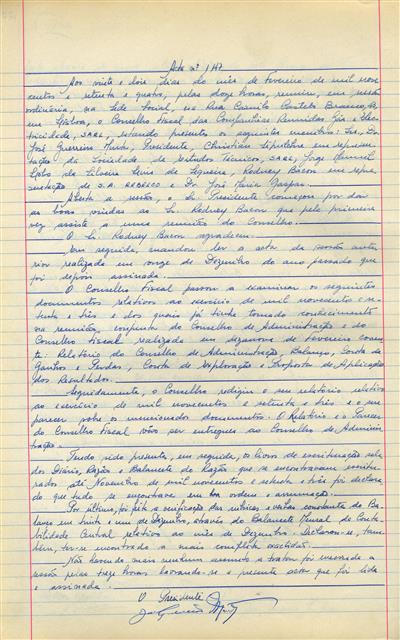 Acta nº 147
Aos vinte e dois dias do mês de Fevereiro de mil nove
centos e setenta e quatro, pelas doze horas, reuniu, em sessão
ordinária, na Sede Social, na Rua Camilo Castelo Branco,
em Lisboa, o Conselho Fiscal das Companhias Reunidas Gás e Elec
tricidade, SARL, estando presentes os seguintes membros: Snr. Dr.
José Guerreiro Murta, Presidente, Christian Leputre em represen
tação da Sociedade de Estudos Técnicos, SARL, Jorge Manuel
de Siqueira, Rodney Bacon em repre
sentação de S.A. e Dr. José Maria Gaspar.
Aberta a sessão, o Sr. Presidente começou por dar
as boas vindas ao Sr. Rodney Bacon que pela primeira
vez assiste a uma reunião do Conselho.
O Sr. Rodney Bacon agradeceu.
Em seguida, mandou ler a acta da sessão ante
rior realizada em onze de Dezembro do ano passado que
foi depois assinada.
O Conselho Fiscal passou a examinar os seguintes
documentos relativos ao exercício de mil novecentos e se
tenta e três e dos quais já tinha tomado conhecimento
na reunião conjunta do Conselho de Administração e do
Conselho Fiscal realizada em dezanove de Fevereiro corren
te: Relatório do Conselho de Administração, Balanço, Conta de
Ganhos e Perdas, Conta de Exploração e Proposta de Aplicação
dos Resultados.
Seguidamente, o Conselho redigiu o seu relatório relativo
ao exercício de mil novecentos e setenta e três e o seu
parecer sobre os mencionados documentos. O Relatório e o Parecer
do Conselho Fiscal vão ser entregues ao Conselho de Adminis
tração.
Tendo sido presente, em seguida, os livros de escrituração sela
dos Diário, Razão e Balancete do Razão que se encontravam escritu
rados até Novembro de mil novecentos e setenta e três foi declara
do que tudo se encontrava em boa ordem e arrumação.
Por último, foi feita a verificação das rubricas e valores constantes do Ba
lanço em trinta e um de Dezembro, através do Balancete Mensal de Conta
bilidade Central relativo ao mês de Dezembro. Declarou-se, tam
bém, ter-se encontrado a mais completa exactidão.
Não havendo mais nenhum assunto a tratar foi encerrada a
sessão pelas treze horas lavrando-se a presente acta que foi lida
e assinada.
O Presidente